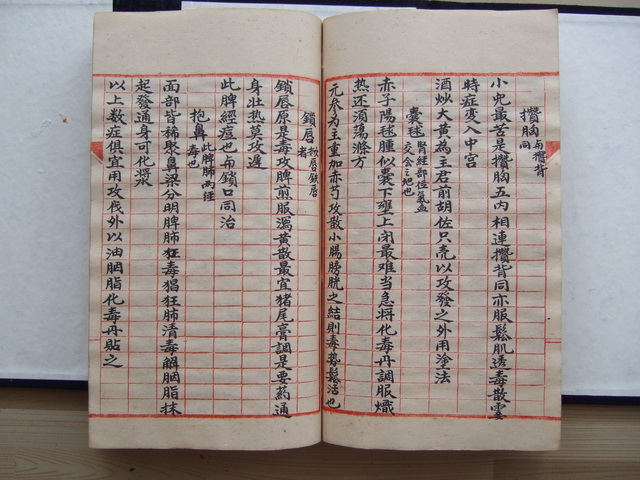 攒胸与攒背同
小兒最苦是攒胸五内相連攒背同亦服鬆肌透毒散霎
時症变入中宫
酒炒大黄為主君前胡佐只壳以攻發之外用塗法
囊毬腎經部位氣血交会之地也
赤子陽毬腫似囊下壅上闭最难当急將化毒丹調服熾
热还須蕩滌方
元参为主重加赤芍攻散小腸膀胱之结則毒势鬆活也
鎖唇掀唇鉄唇者
鎖唇原是毒攻脾煎服瀉黄散最宜猪尾膏調是要药通
身壮热莫攻遅
此脾經痘也与鎖口同治
抱鼻此脾肺两経毒也
面部皆稀聚鼻梁分明脾肺狂毒猖狂肺清毒解胭脂抹
起發通身可化漿
以上数症俱宜用攻伐外以油胭脂化毒丹貼之